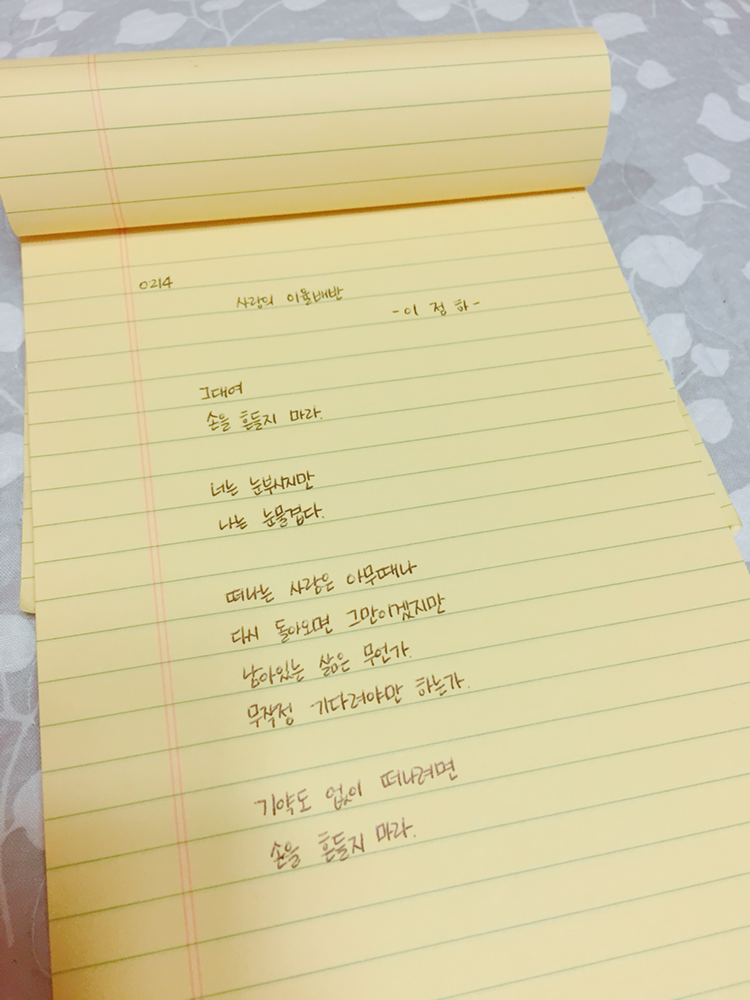 0214
사랑의 이율배반
-이 정 하-
그대여
손을 흔들지 마라.
너는 눈부시지만
나는 눈물겹다.
떠나는 사람은 아무때나
다시 돌아오면 그만이겠지만
남아있는 삶은 무언가.
무작정 기다려야만 하는가.
기약도 없이 떠나려면
손을 흔들지 마라.